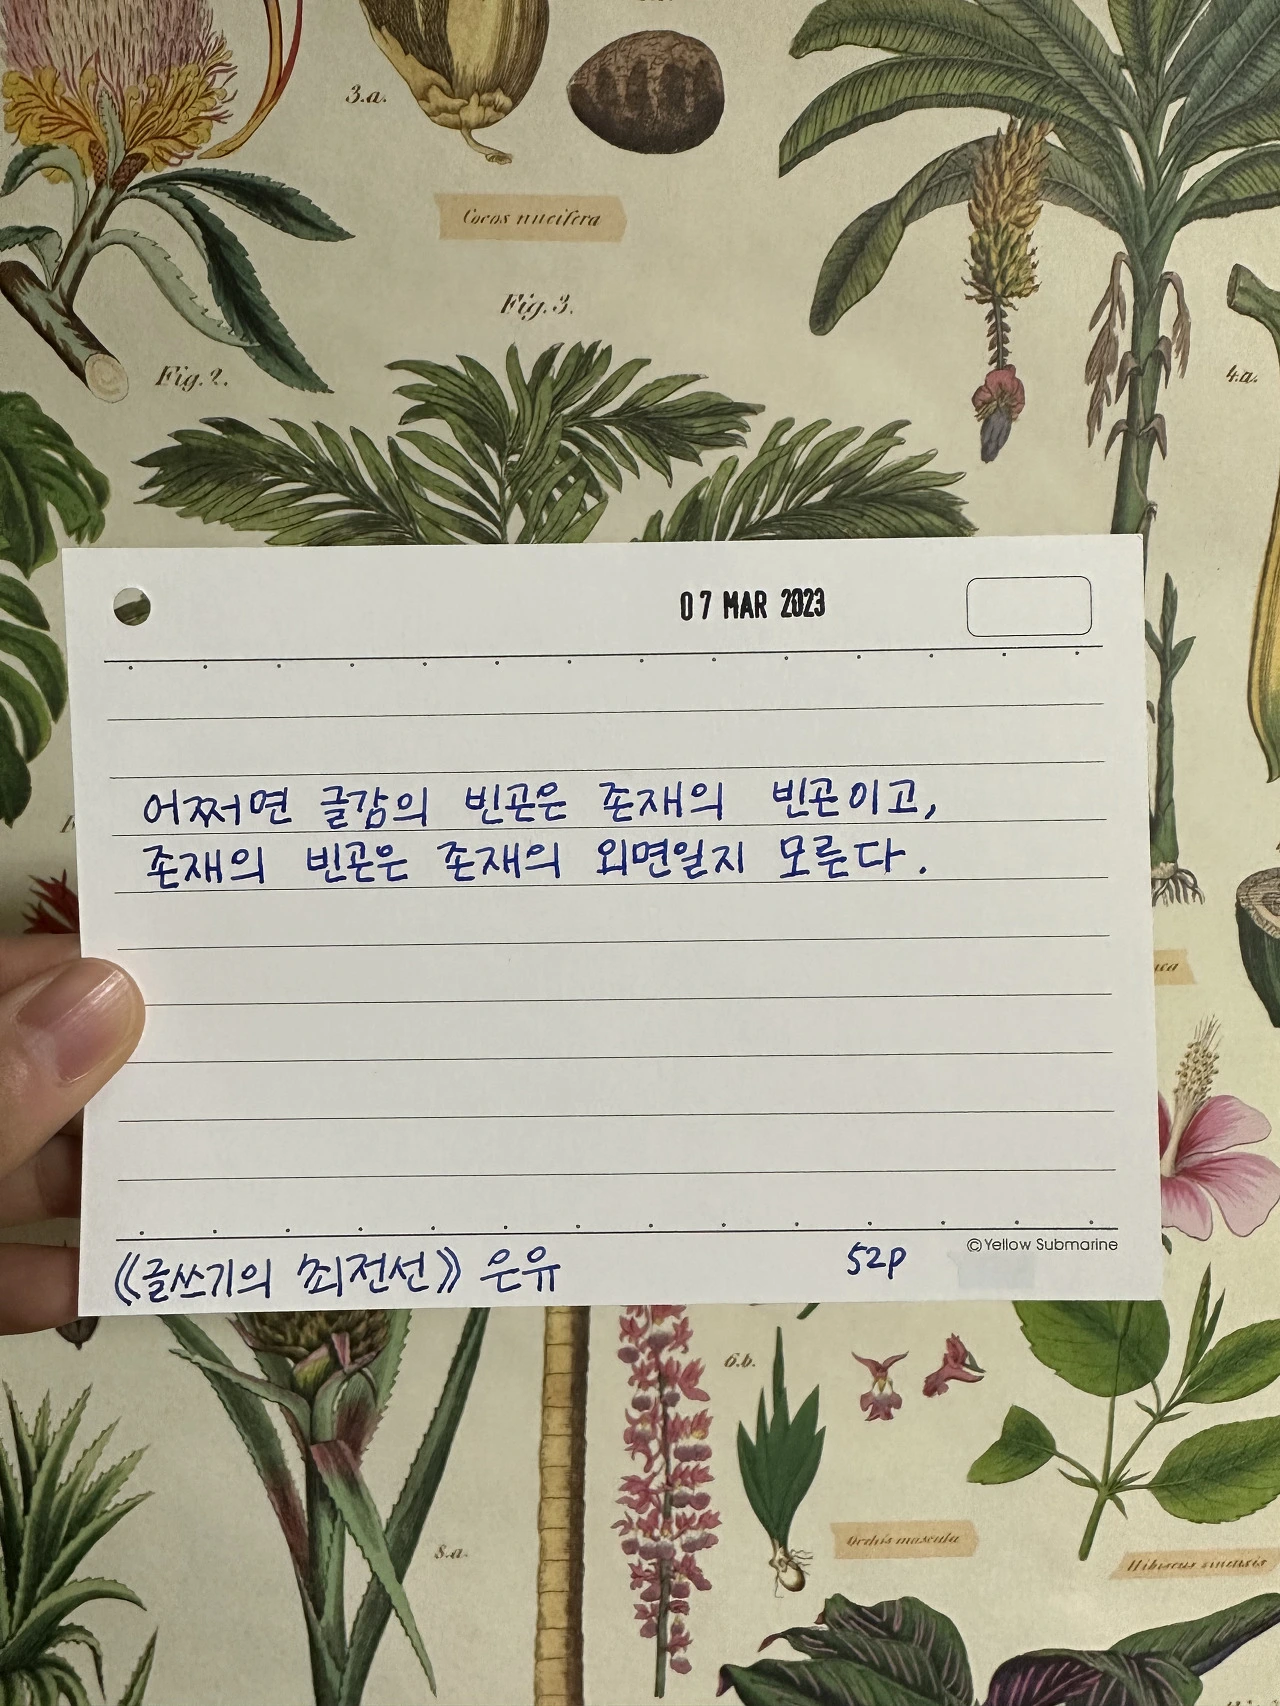 3.a.
Cocos nucifera
Fig. 3.
Fig. 2.
4.a.
07 MAR 2023
어쩌면 글감의 빈곤은 존재의 빈곤이고,
존재의 빈곤은 존재의 외면일지 모른다.
《글쓰기의 최전선》 은유 52p
©Yellow Submarine
6.b.
8.a.
Orchis mascula
Hibiscus sinensis